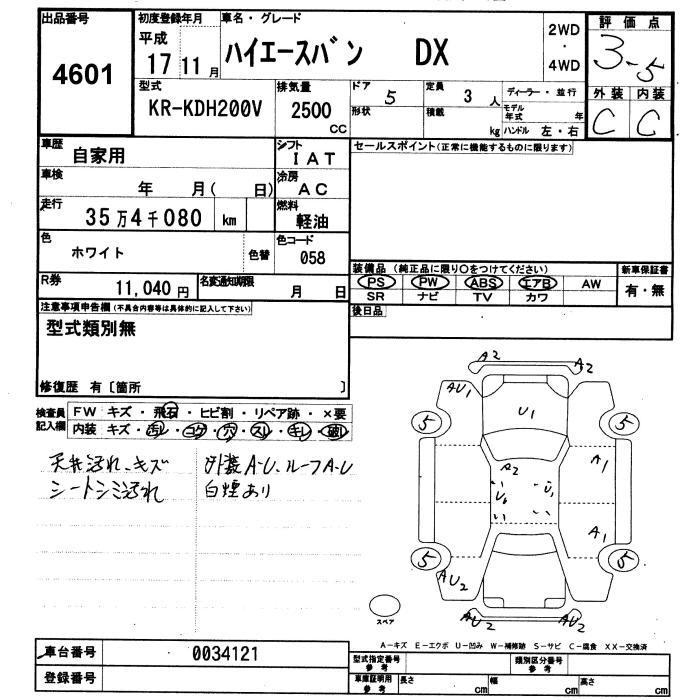 出品番号
4601
初度登録年月
平成
17 11 月
車名・グレード
ハイエースバン DX
2WD
・
4WD
評価点
3-5
外装 内装
C C
型式
KR-KDH200V
排気量
2500
CC
ドア 5
形状
定員 3 人
積載 kg
ディーラー・並行
モデル年式 年
ハンドル 左・右
車歴
自家用
シフト
IAT
車検
年 月( 日)
冷房
AC
走行
35万4千080 km
燃料
軽油
色
ホワイト
色替
色コード
058
R券
11,040 円
名変通知期限
月 日
セールスポイント(正常に機能するものに限ります)
装備品 (純正品に限り○をつけてください)
PS PW ABS エアB AW
SR ナビ TV カワ
新車保証書
有・無
後日品
注意事項申告欄(不具合内容等は具体的に記入して下さい)
型式類別無
修復歴 有〔箇所 〕
検査員
記入欄
FW キズ・飛石・ヒビ割・リペア跡・×要
内装 キズ・汚レ・コゲ・穴・スレ・キレ・破レ
天井汚れ、キズ
シートシミ汚れ
外装A-U、ルーフA-U
白煙あり
A2 A2
AU1
U1
5 5
A2
A1
U1
A1
5 5
AU2
AU2 AU2
スペア
A-キズ E-エクボ U-凹み W-補修跡 S-サビ C-腐食 XX-交換済
車台番号
0034121
登録番号
型式指定番号
参考
類別区分番号
参考
車庫証明用
参考
長さ cm
幅 cm
高さ cm